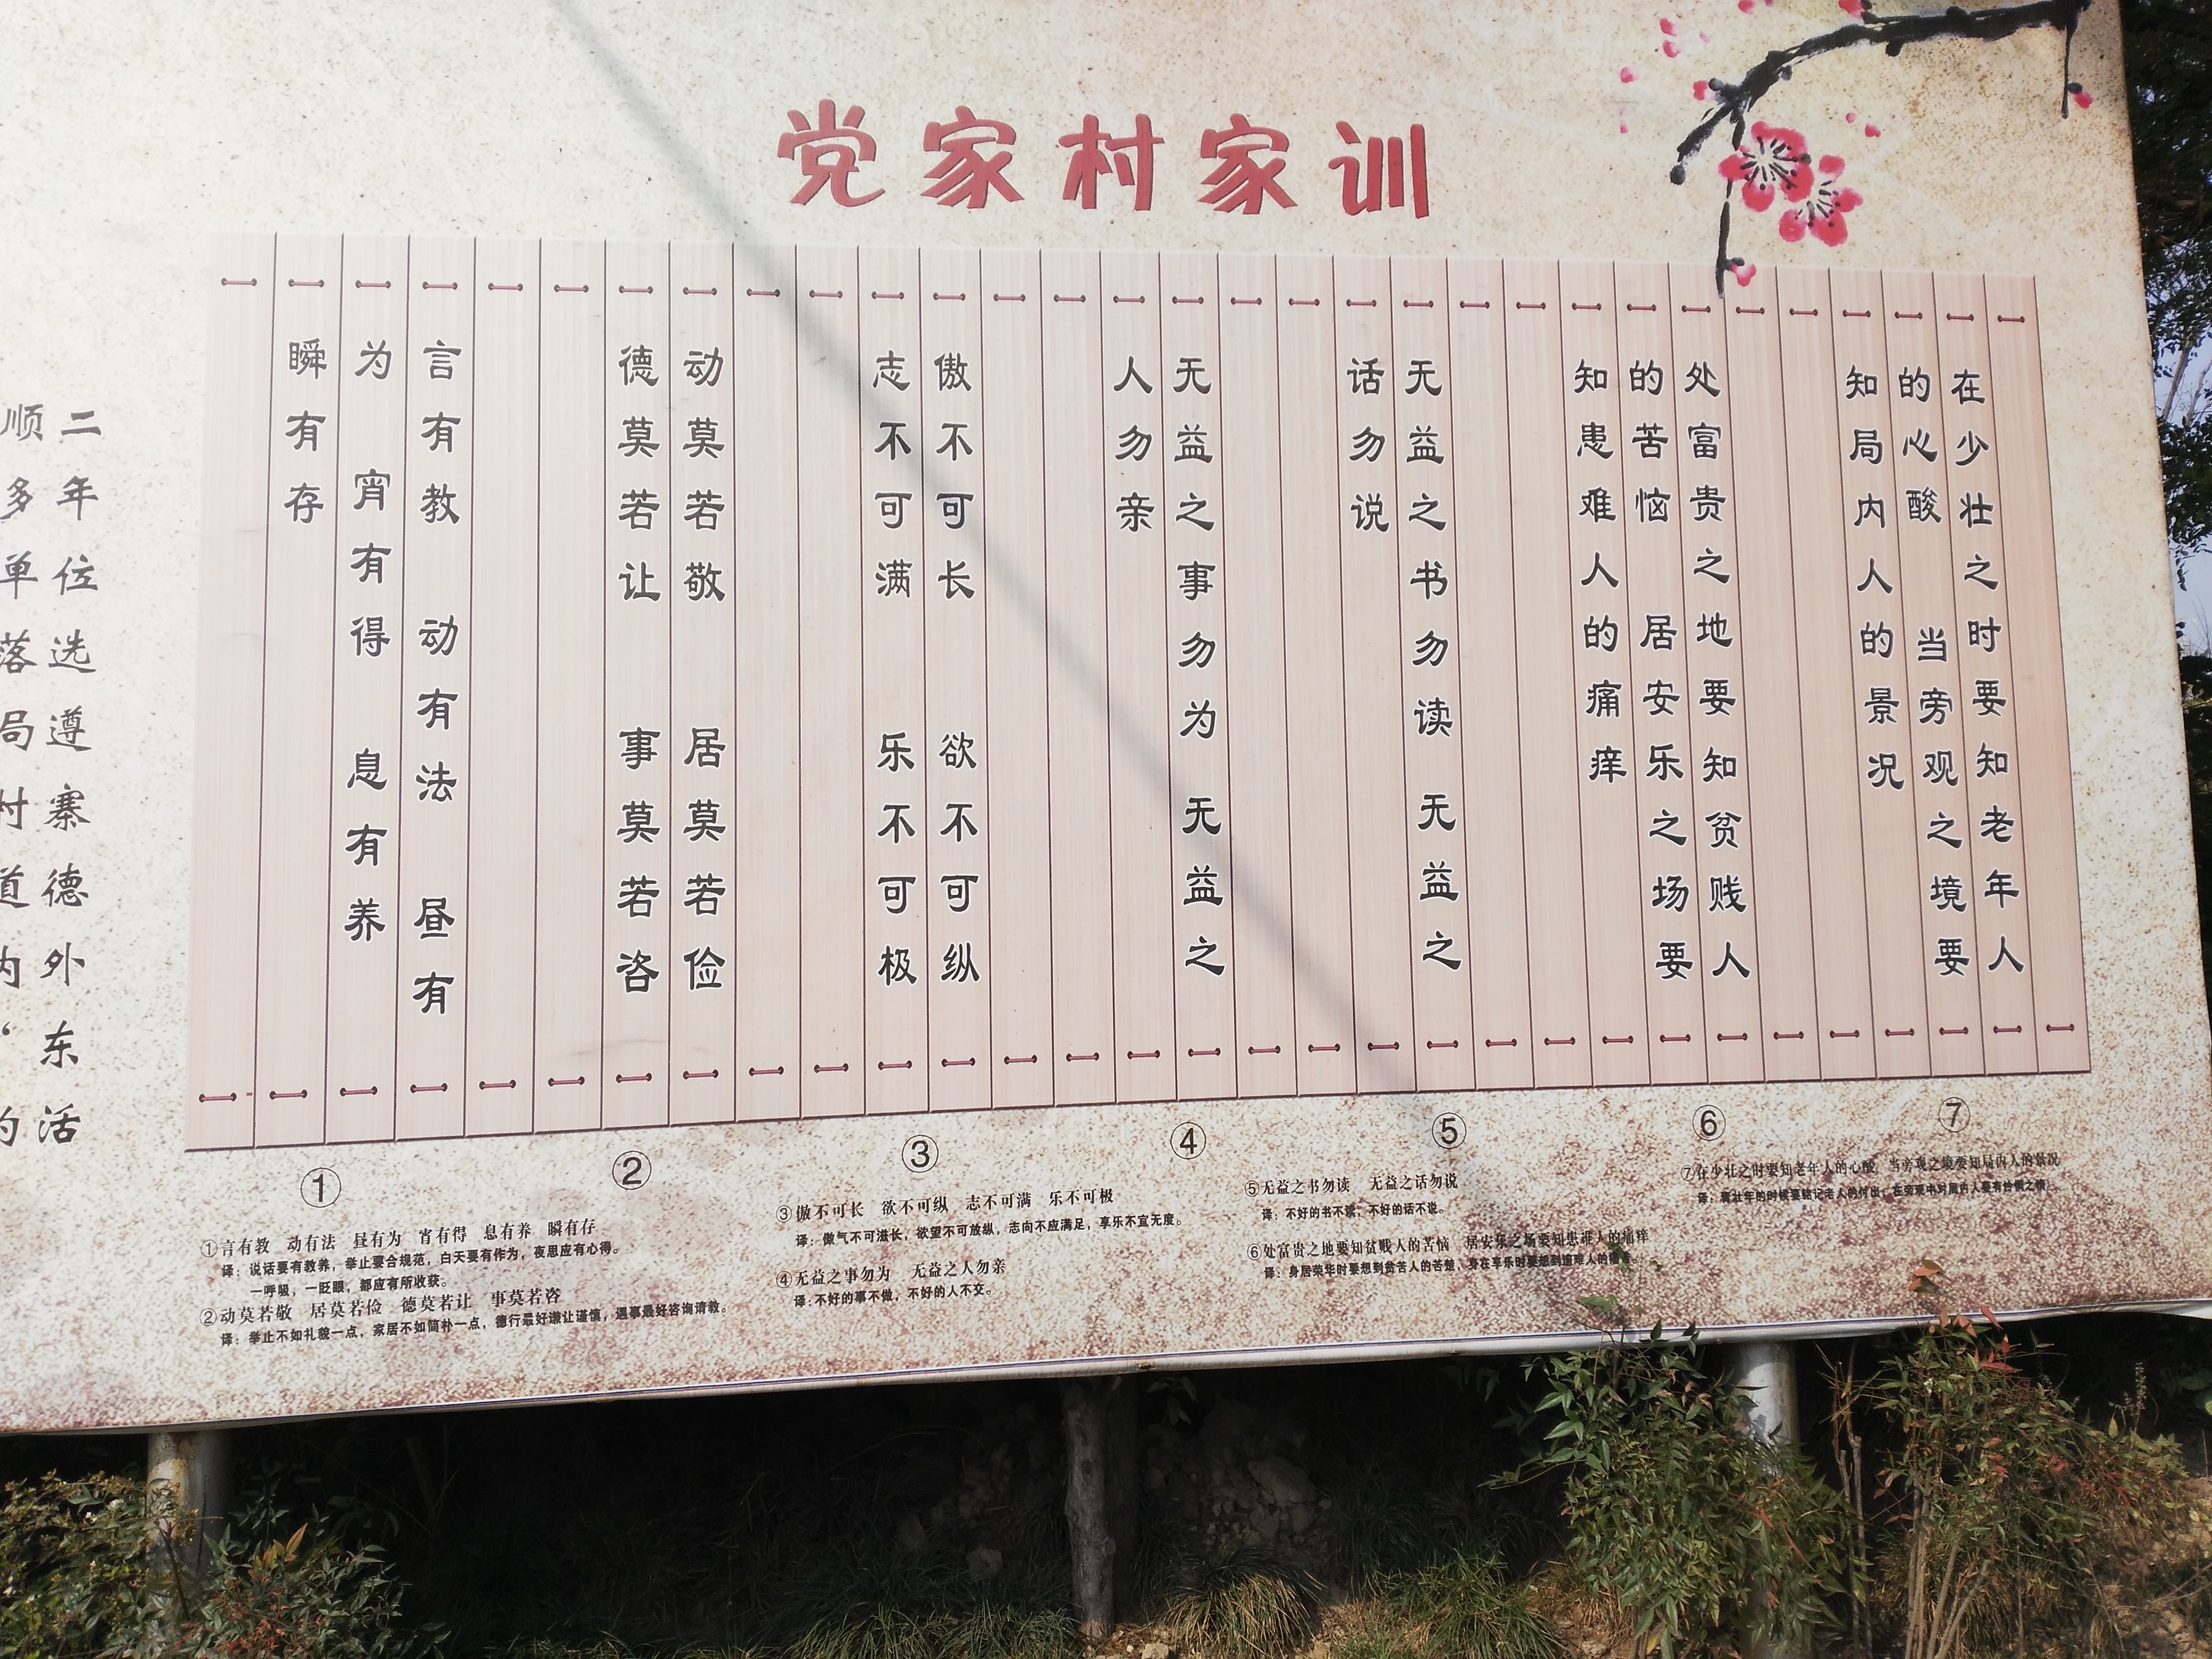 党家村家训
在少壮之时要知老年人
的心酸 当旁观之境要
知局内人的景况
处富贵之地要知贫贱人
的苦恼 居安乐之场要
知患难人的痛痒
无益之书勿读 无益之
话勿说
无益之事勿为 无益之
人勿亲
傲不可长 欲不可纵
志不可满 乐不可极
动莫若敬 居莫若俭
德莫若让 事莫若咨
言有教 动有法 昼有
为 宵有得 息有养
瞬有存
二年位选遵寨德外东活
顺多单落局村道内
① ② ③ ④ ⑤ ⑥ ⑦
①言有教 动有法 昼有为 宵有得 息有养 瞬有存
译：说话要有教养，举止要合规范，白天要有作为，夜思应有心得。
一呼吸，一眨眼，都应有所收获。
②动莫若敬 居莫若俭 德莫若让 事莫若咨
译：举止不如礼貌一点，家居不如简朴一点，德行最好谦让谨慎，遇事最好咨询请教。
③傲不可长 欲不可纵 志不可满 乐不可极
译：傲气不可滋长，欲望不可放纵，志向不应满足，享乐不宜无度。
④无益之事勿为 无益之人勿亲
译：不好的事不做，不好的人不交。
⑤无益之书勿读 无益之话勿说
译：不好的书不读，不好的话不说。
⑥处富贵之地要知贫贱人的苦恼 居安乐之场要知患难人的痛痒
译：身居荣华时要想到贫苦人的苦楚，身在享乐时要想到遭难人的
⑦在少壮之时要知老年人的心酸 当旁观之境要知局内人的景况
译：青壮年的时候要铭记老人的付出，在旁观中对局内人要有怜悯之情。